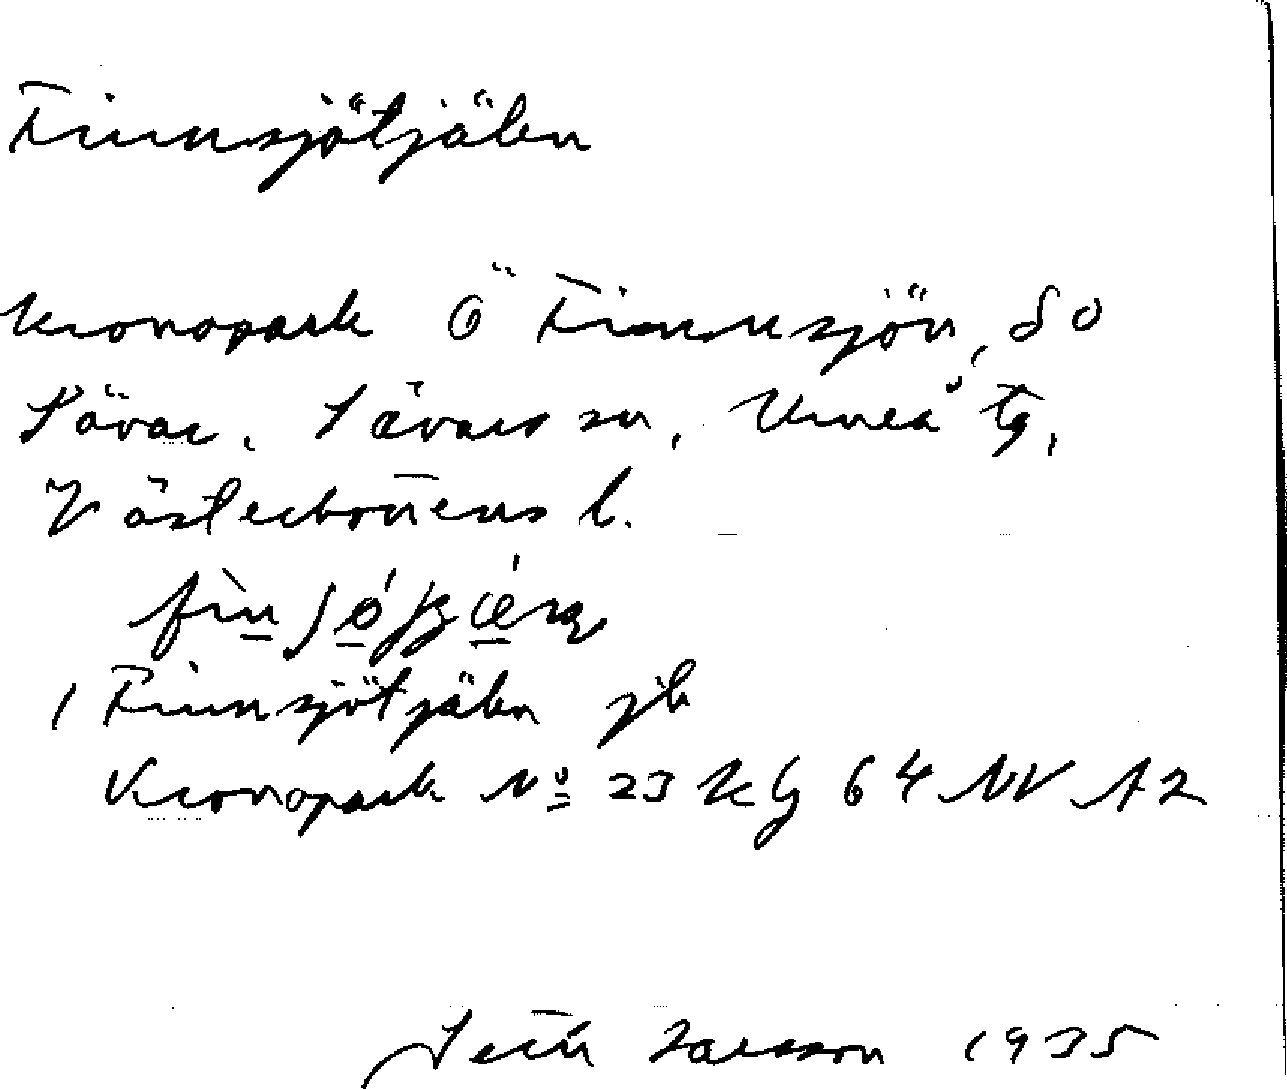 Finnsjötjälen
Kronopark Ö Finnsjön, SO
Sävar, Sävars sn, Umeå tg,
Västerbottens l.
1 Finnsjötjälen jb
Kronopark No 23 KG 64 NV A2
Seth Larsson 1935